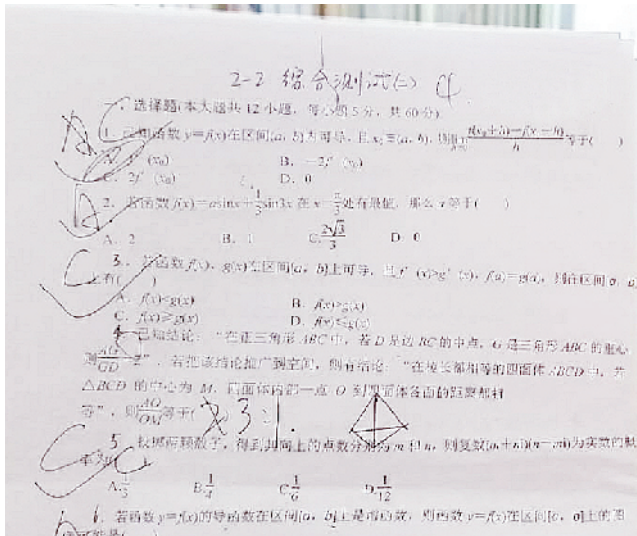 2-2 综合测试(二)
一、选择题(本大题共12小题，每小题5分，共60分)
1. 已知函数 y=f(x)在区间(a，b)内可导，且x₀∈(a，b)，则 f(x₀+h)-f(x₀-h)/h 等于( )
f′(x₀) B. -2f′(x₀)
C. 2f′(x₀) D. 0
2. 若函数 f(x)=asinx+1/3sin3x 在 x=π/3处有最值，那么 a 等于( )
A. 2 B. 1 C. 2√3/3 D. 0
3. 若函数 f(x)，g(x)在区间[a，b]上可导，且f′(x)>g′(x)，f(a)=g(a)，则在区间
上有( )
A. f(x)<g(x) B. f(x)>g(x)
C. f(x)≥g(x) D. f(x)≤g(x)
4 已知结论：“在正三角形 ABC 中，若 D 是边 BC 的中点，G 是三角形 ABC 的重心
则AG/GD=2”．若把该结论推广到空间，则有结论：“在棱长都相等的四面体 ABCD 中，若
△BCD 的中心为 M，四面体内部一点 O 到四面体各面的距离都相
等”，则AO/OM等于( 3
5 抛掷两颗骰子，得到其向上的点数分别为 m 和 n，则复数(m+ni)(n-mi)为实数的概
率为( )
A. 1/3 B. 1/4 C. 1/6 D. 1/12
6. 若函数 y=f(x)的导函数在区间[a，b]上是增函数，则函数 y=f(x)在区间[a，b]上的图